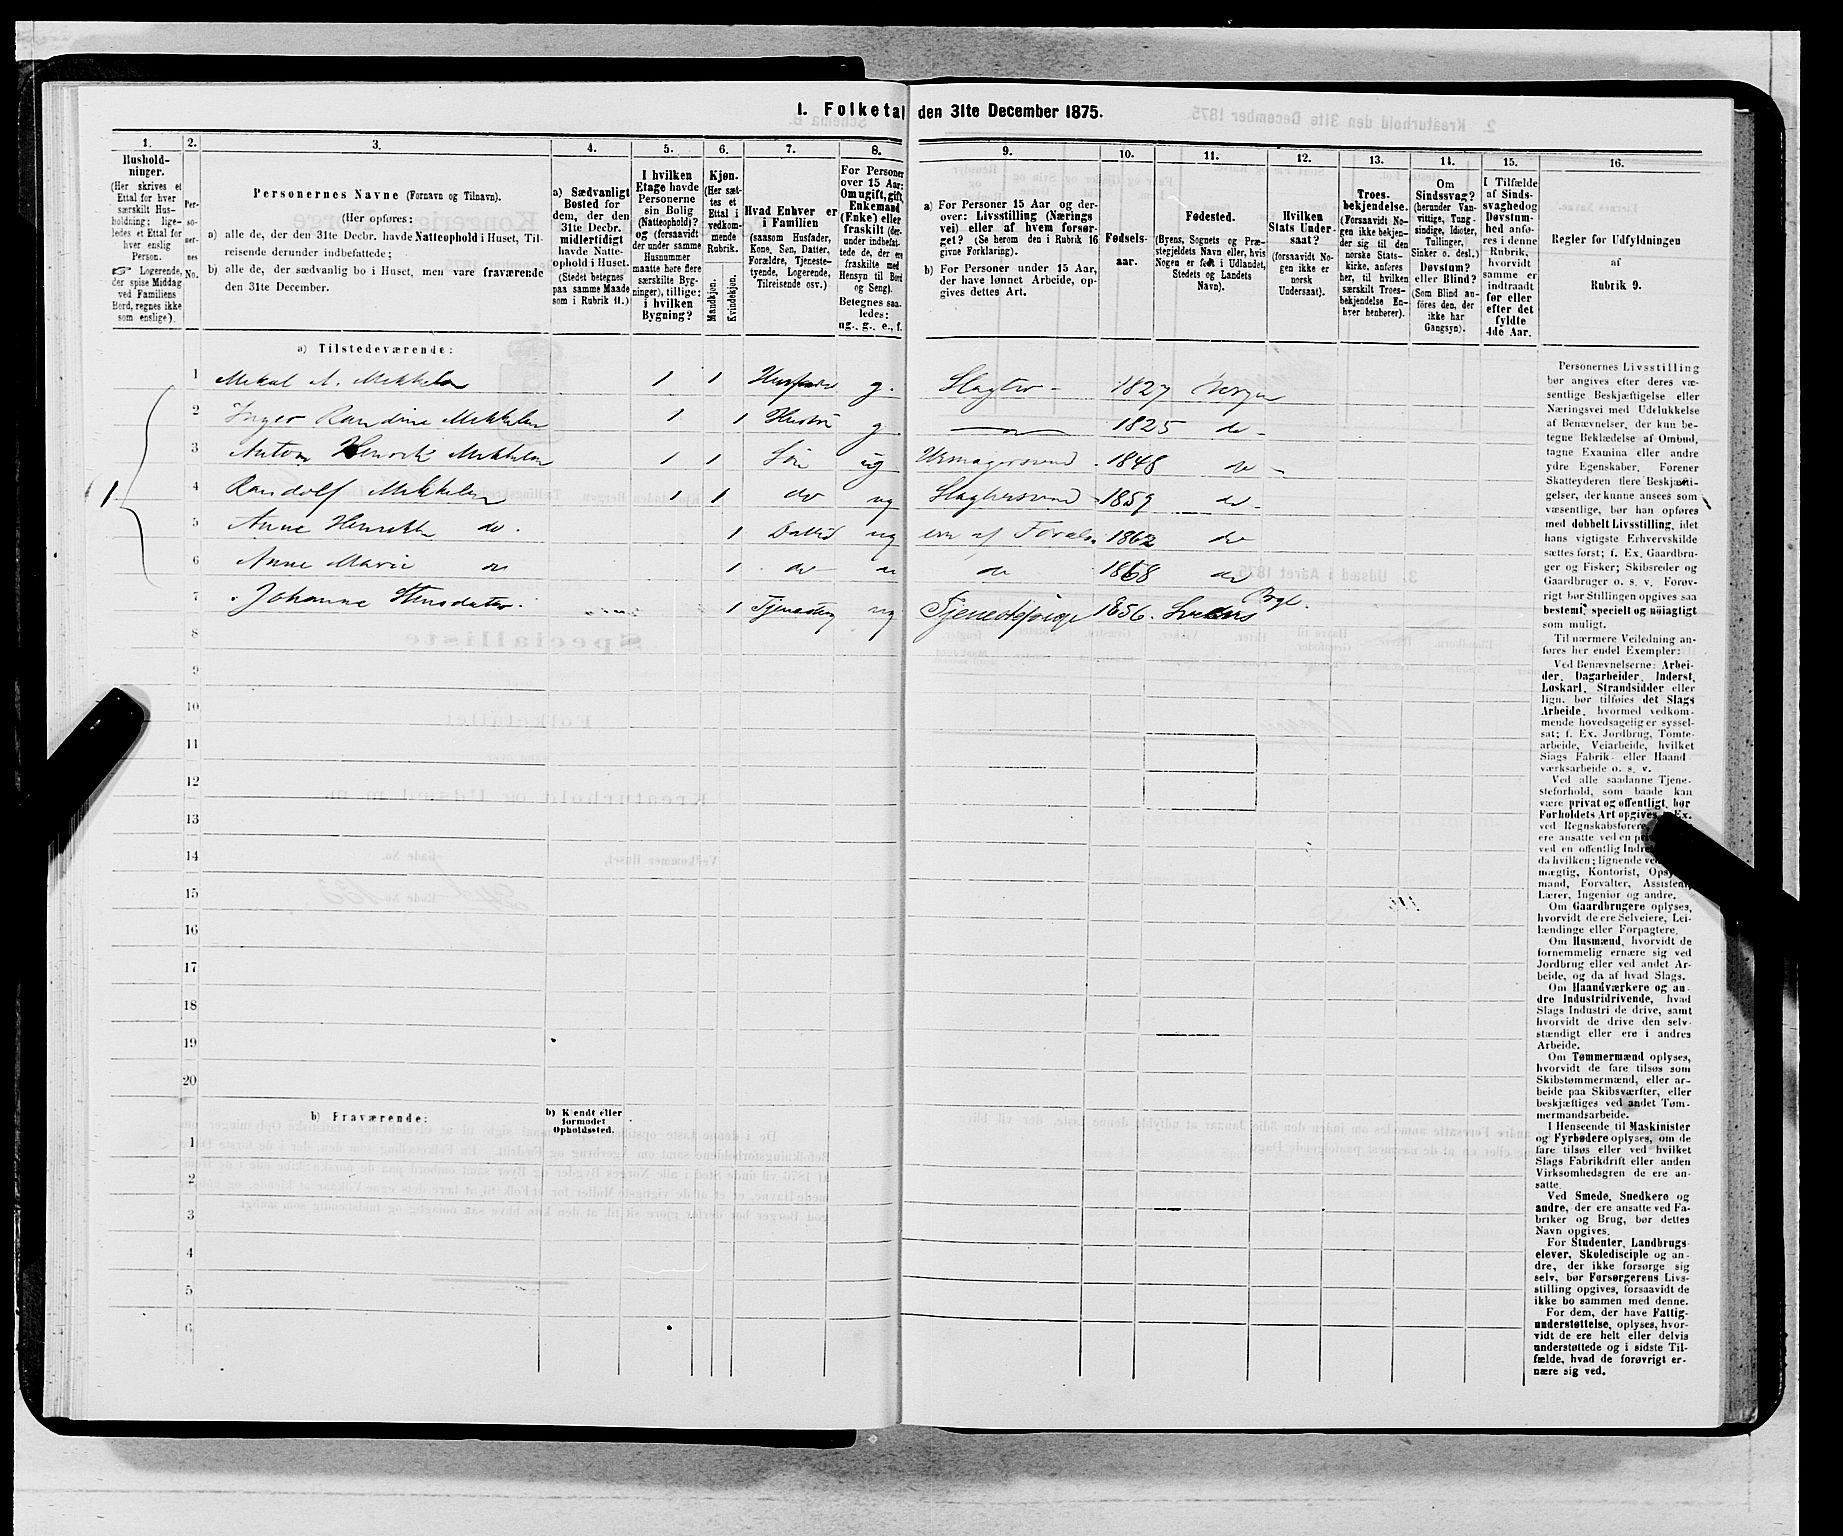 I. Folketal den 31te December 1875.
1. 2. 3. 4. 5. 6. 7. 8. 9. 10. 11. 12. 13. 14. 15. 16.
Hushold-
ninger.
(Her skrives et
Ettal for hver
særskilt Hus-
holdning; lige-
ledes et Ettal for
hver enslig
Person.
☞ Logerende,
der spise Middag
ved Familiens
Bord, regnes ikke
som enslige).
Per-
so-
ner-
nes
No.
Personernes Navne (Fornavn og Tilnavn).
(Her opføres:
a) alle de, der den 31te Decbr. havde Natteophold i Huset, Til-
reisende derunder indbefattede;
b) alle de, der sædvanlig bo i Huset, men vare fraværende
den 31te December.
a) Sædvanligt
Bosted for
dem, der den
31te Decbr.
midlertidigt
havde Natte-
ophold i Huset.
(Stedet betegnes
paa samme Maade
som i Rubrik 11.)
I hvilken
Etage havde
Personerne
sin Bolig
(Natteophold)?
og (forsaavidt
der under samme
Husnummer
maatte høre flere
særskilte Byg-
ninger), tillige:
i hvilken
Bygning?
Kjøn.
(Her sæt-
tes et
Ettal i
vedkom-
mende
Rubrik.
Mandkjøn.
Kvindekjøn.
Hvad Enhver er
i Familien
(saasom Husfader,
Kone, Søn, Datter,
Forældre, Tjeneste-
tyende, Logerende,
Tilreisende osv.)
For Personer
over 15 Aar:
Om ugift, gift,
Enkemand
(Enke) eller
fraskilt (der-
under indbefat-
tede de, der ere
fraskilte med
Hensyn til Bord
og Seng).
Betegnes saa-
ledes:
ug., g., e., f.
a) For Personer 15 Aar og der-
over: Livsstilling (Nærings
vei) eller af hvem forsør-
get? (Se herom den i Rubrik 16
givne Forklaring).
b) For Personer under 15 Aar,
der have lønnet Arbeide, op-
gives dettes Art.
Fødsels-
aar.
Fødested.
(Byens, Sognets og Præ-
stegjeldets Navn eller, hvis
Nogen er født i Udlandet,
Stedets og Landets
Navn).
Hvilken
Stats Under-
saat?
(forsaavidt No-
gen ikke er
norsk
Undersaat).
Troes-
bekjendelse.
(Forsaavidt No-
gen ikke bekjen-
der sig til den
norske Stats-
kirke, anføres
her, til hvilken
særskilt Troes-
bekjendelse En-
hver henhører).
Om
Sindssvag?
(herunder Van-
vittige, Tung-
sindige, Idioter,
Tullinger,
Sinker o. desl.)
Døvstum?
eller Blind?
(Som Blind an-
føres den, der
ikke har
Gangsyn).
I Tilfælde
af Sinds-
svaghed og
Døvstum-
hed anfø-
res i denne
Rubrik,
hvorvidt
samme er
indtraadt
før eller
efter det
fyldte
4de Aar.
Regler for Udfyldningen
af
Rubrik 9.
a) Tilstedeværende:
1 Mikal A. Mikkelsen 1 1 Husfader g. Slagter - 1827 Bergen
2 Inger Randine Mikkelsen 1 1 Hustru g. 1825 do -
3 Anton Henrik Mikkelsen 1 1 Søn ug Urmagersvend 1848 do -
1 4 Randolf Mikkelsen 1 1 do ug Slagtersvend 1859 do -
5 Anne Henrikke do. 1 Datter ug 1862 do
6 Anne Marie do 1 do do do 1868 do
7 Johanne 1 ug Tjenestepige 1856.
8
9
10
11
12
13
14
15
16
17
18
19
20
b) Fraværende:
b) Kjendt eller
formodet
Opholdssted.
1
2
3
4
5
6
Personernes Livsstilling
bør angives efter deres væ-
sentlige Beskjæftigelse eller
Næringsvei med Udelukkelse
af Benævnelser, der kun be-
tegne Beklædelse af Ombud,
tagne Examina eller andre
ydre Egenskaber. Forener
Skatteyderen flere Beskjæfti-
gelser, der kunne ansees som
væsentlige, bør han opføres
med dobbelt Livsstilling, idet
hans vigtigste Erhvervskilde
sættes først; f. Ex. Gaardbru-
ger og Fisker; Skibsreder og
Gaardbruger o. s. v. Forøv-
rigt bør Stillingen opgives saa
bestemt, specielt og nøiagtigt
som muligt.
Til nærmere Veiledning an-
føres her endel Exempler:
Ved Benævnelserne: Arbei-
der, Dagarbeider, Inderst,
Løskarl, Strandsidder eller
lign. bør tilføies det Slags
Arbeide, hvormed vedkom-
mende hovedsagelig er syssel-
sat; f. Ex. Jordbrug, Tomte-
arbeide, Veiarbeide, hvilket
Slags Fabrik- eller Haand
værksarbeide o. s. v.
Ved alle saadanne Tjene-
steforhold, som baade kan
være privat og offentligt, bør
Forholdets Art opgives, f. Ex.
ved Regnskabsførere,
ere ansatte ved en
ved en offentlig
da hvilken; lignende
mægtig, Kontorist,
mand, Forvalter, Assistent,
Lærer, Ingeniør og andre.
Om Gaardbrugere oplyses,
hvorvidt de ere Selveiere, Lei-
lændinge eller Forpagtere.
Om Husmænd, hvorvidt de
fornemmelig ernære sig ved
Jordbrug eller ved andet Ar-
beide, og da af hvad Slags.
Om Haandværkere og an-
dre Industridrivende, hvad
Slags Industri de drive, samt
hvorvidt de drive den selv-
stændigt eller ere i andres
Arbeide.
Om Tømmermænd oplyses,
hvorvidt de fare tilsøs som
Skibstømmermænd, eller ar-
beide paa Skibsværfter, eller
beskjæftiges ved andet Tøm-
mermandsarbeide.
I Henseende til Maskinister
og Fyrbødere oplyses, om de
fare tilsøs eller ved hvilket
Slags Fabrikdrift eller anden
Virksomhedsgren de ere an-
satte.
Ved Smede, Snedkere og
andre, der ere ansatte ved Fa-
briker og Brug, bør dettes
Navn opgives.
For Studenter, Landbrugs-
elever, Skoledisciple og an-
dre, der ikke forsørge sig
selv, bør Forsørgerens Livs-
stilling opgives, forsaavidt de
ikke bo sammen med denne.
For dem, der have Fattig-
understøttelse, oplyses, hvor-
vidt de ere helt eller delvis
understøttede og i sidste Til-
fælde, hvad de forøvrigt er-
nære sig ved.